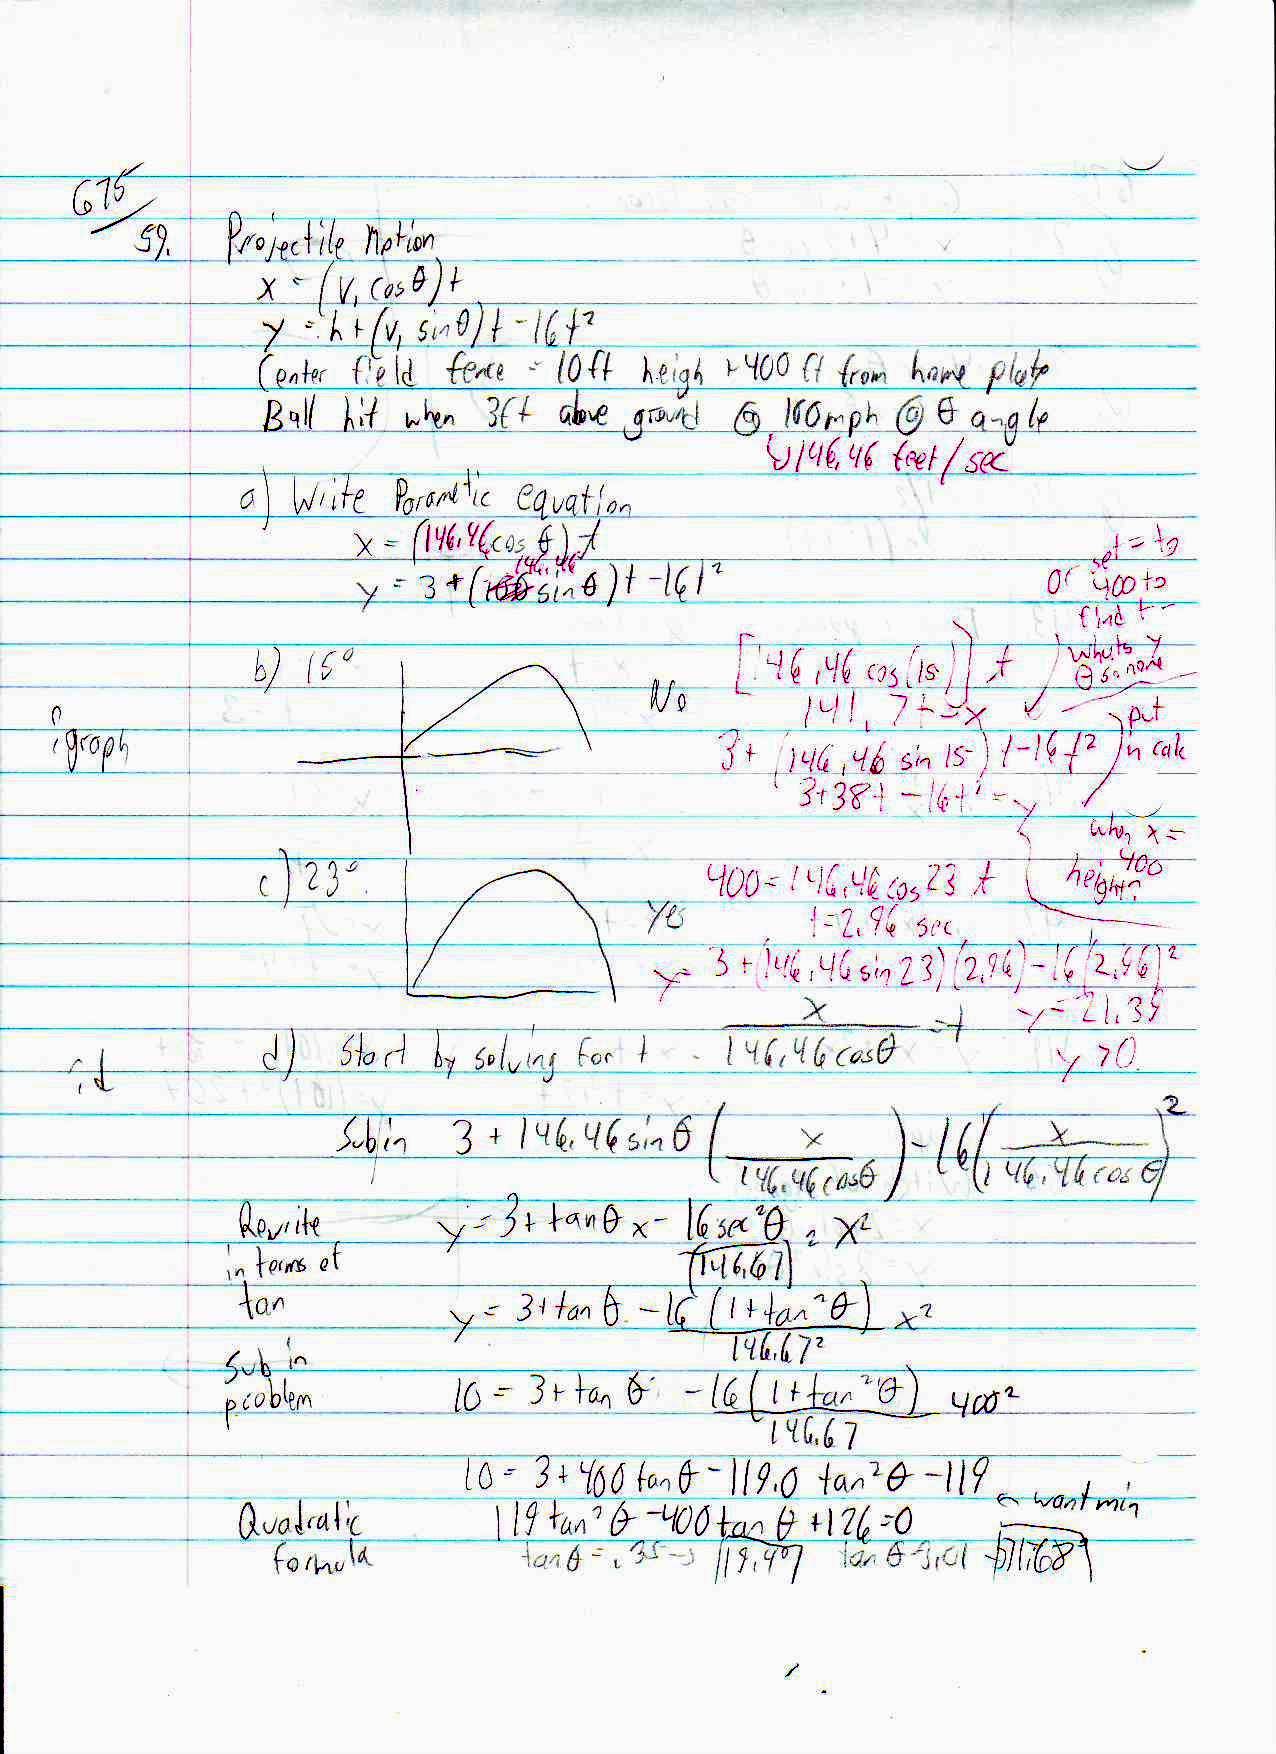 675
59. Projectile Motion
x = (V, cosθ)t
y = h+(V, sinθ)t -16t²
Center field fence = 10ft heigh + 400 ft from home plate
Ball hit when 3ft above ground @ 100mph @ θ angle
146.46 feet/sec
a) Write Parametic equation
x = (146.46 cos θ) t
146.46
y = 3 + (100 sin θ)t -16t²
or set = to
400 to
find t
b) 15°
No
[146.46 cos(15)] t
141.7t = x
put
in calc
graph
3+ (146.46 sin 15) t -16t²
3+38t -16t² = y
when x =
400
height?
c) 23°
yes
400 = 146.46 cos 23 t
t = 2.96 sec
y= 3 + (146.46 sin 23)(2.96) -16(2.96)²
y = 21.39
y > 0
d) Start by solving for t x/146.46 cosθ = t
Sub in 3 + 146.46 sin θ (x/146.46 cosθ) - 16(x/146.46 cos θ)²
Rewrite
in terms of
tan
y = 3 + tanθ x - 16 sec²θ/(146.67)² x²
y = 3 + tan θ - 16 (1 + tan²θ)/146.67² x²
Sub in
problem
10 = 3 + tan θ - 16 (1 + tan²θ)/146.67 400²
10 = 3 + 400 tan θ - 119.0 tan²θ - 119
want min
Quadratic
formula
119 tan²θ - 400 tan θ + 126 = 0
tanθ = .35 → 19.4° tan θ 3.01 71.68°